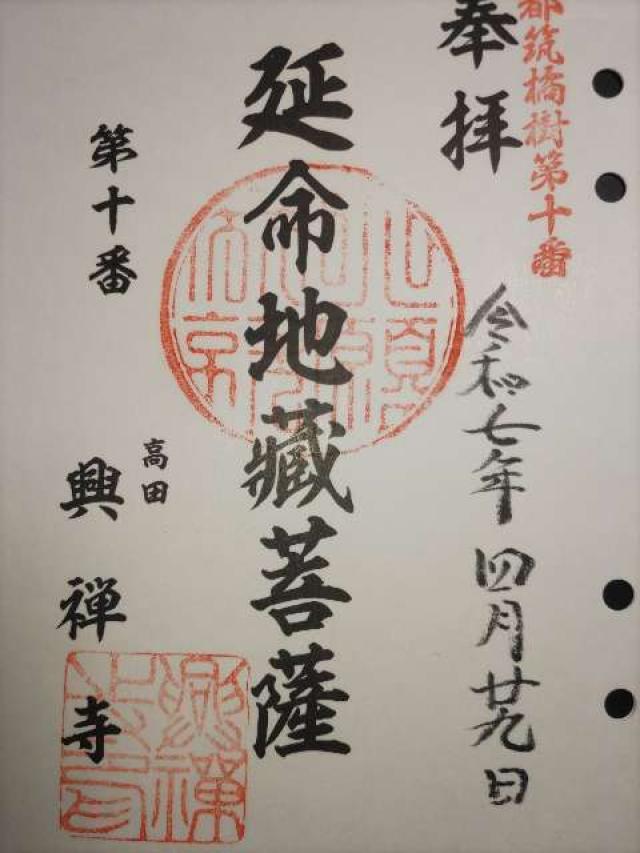 都筑橘樹第十番
奉拝
令和七年四月廿九日
延命地藏菩薩
第十番
高田
興禅寺